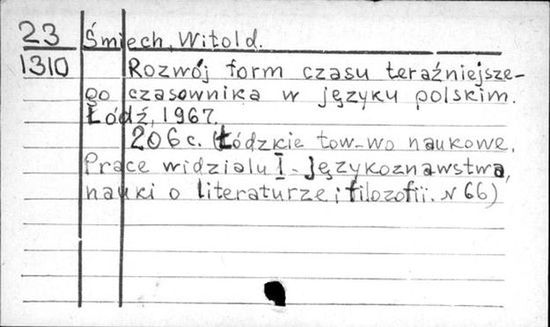 23 Śmiech, Witold.
1310 Rozwój form czasu teraźniejsze-
go czasownika w języku polskim.
Łódź, 1967.
206 c. (Łódzkie tow-wo naukowe.
Prace widzialu I - językoznawstwa,
nauki o literaturze i filozofii. N 66)